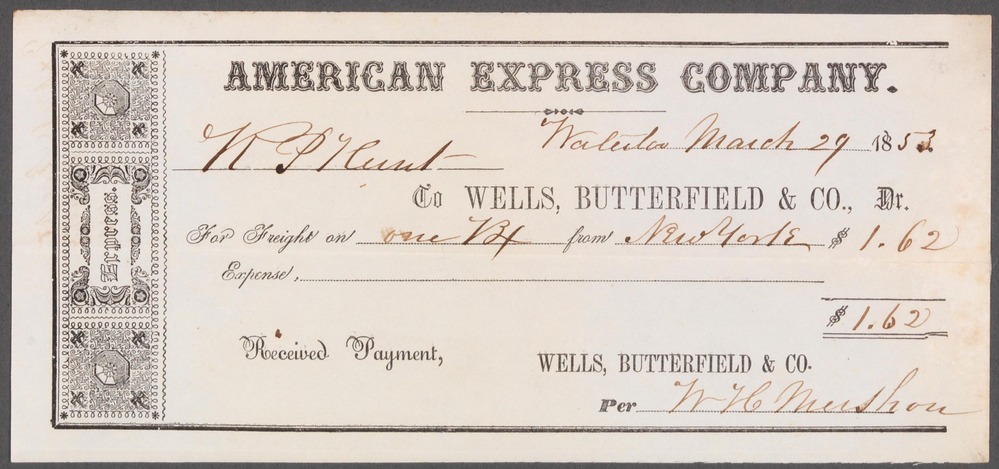 AMERICAN EXPRESS COMPANY.
Waterloo March 29 1853
R P Hunt
To WELLS, BUTTERFIELD & CO., Dr.
For Freight on one Bx from New York $ 1.62
Expense,
$ 1.62
Received Payment, WELLS, BUTTERFIELD & CO.
Per W H Mershon
Express.